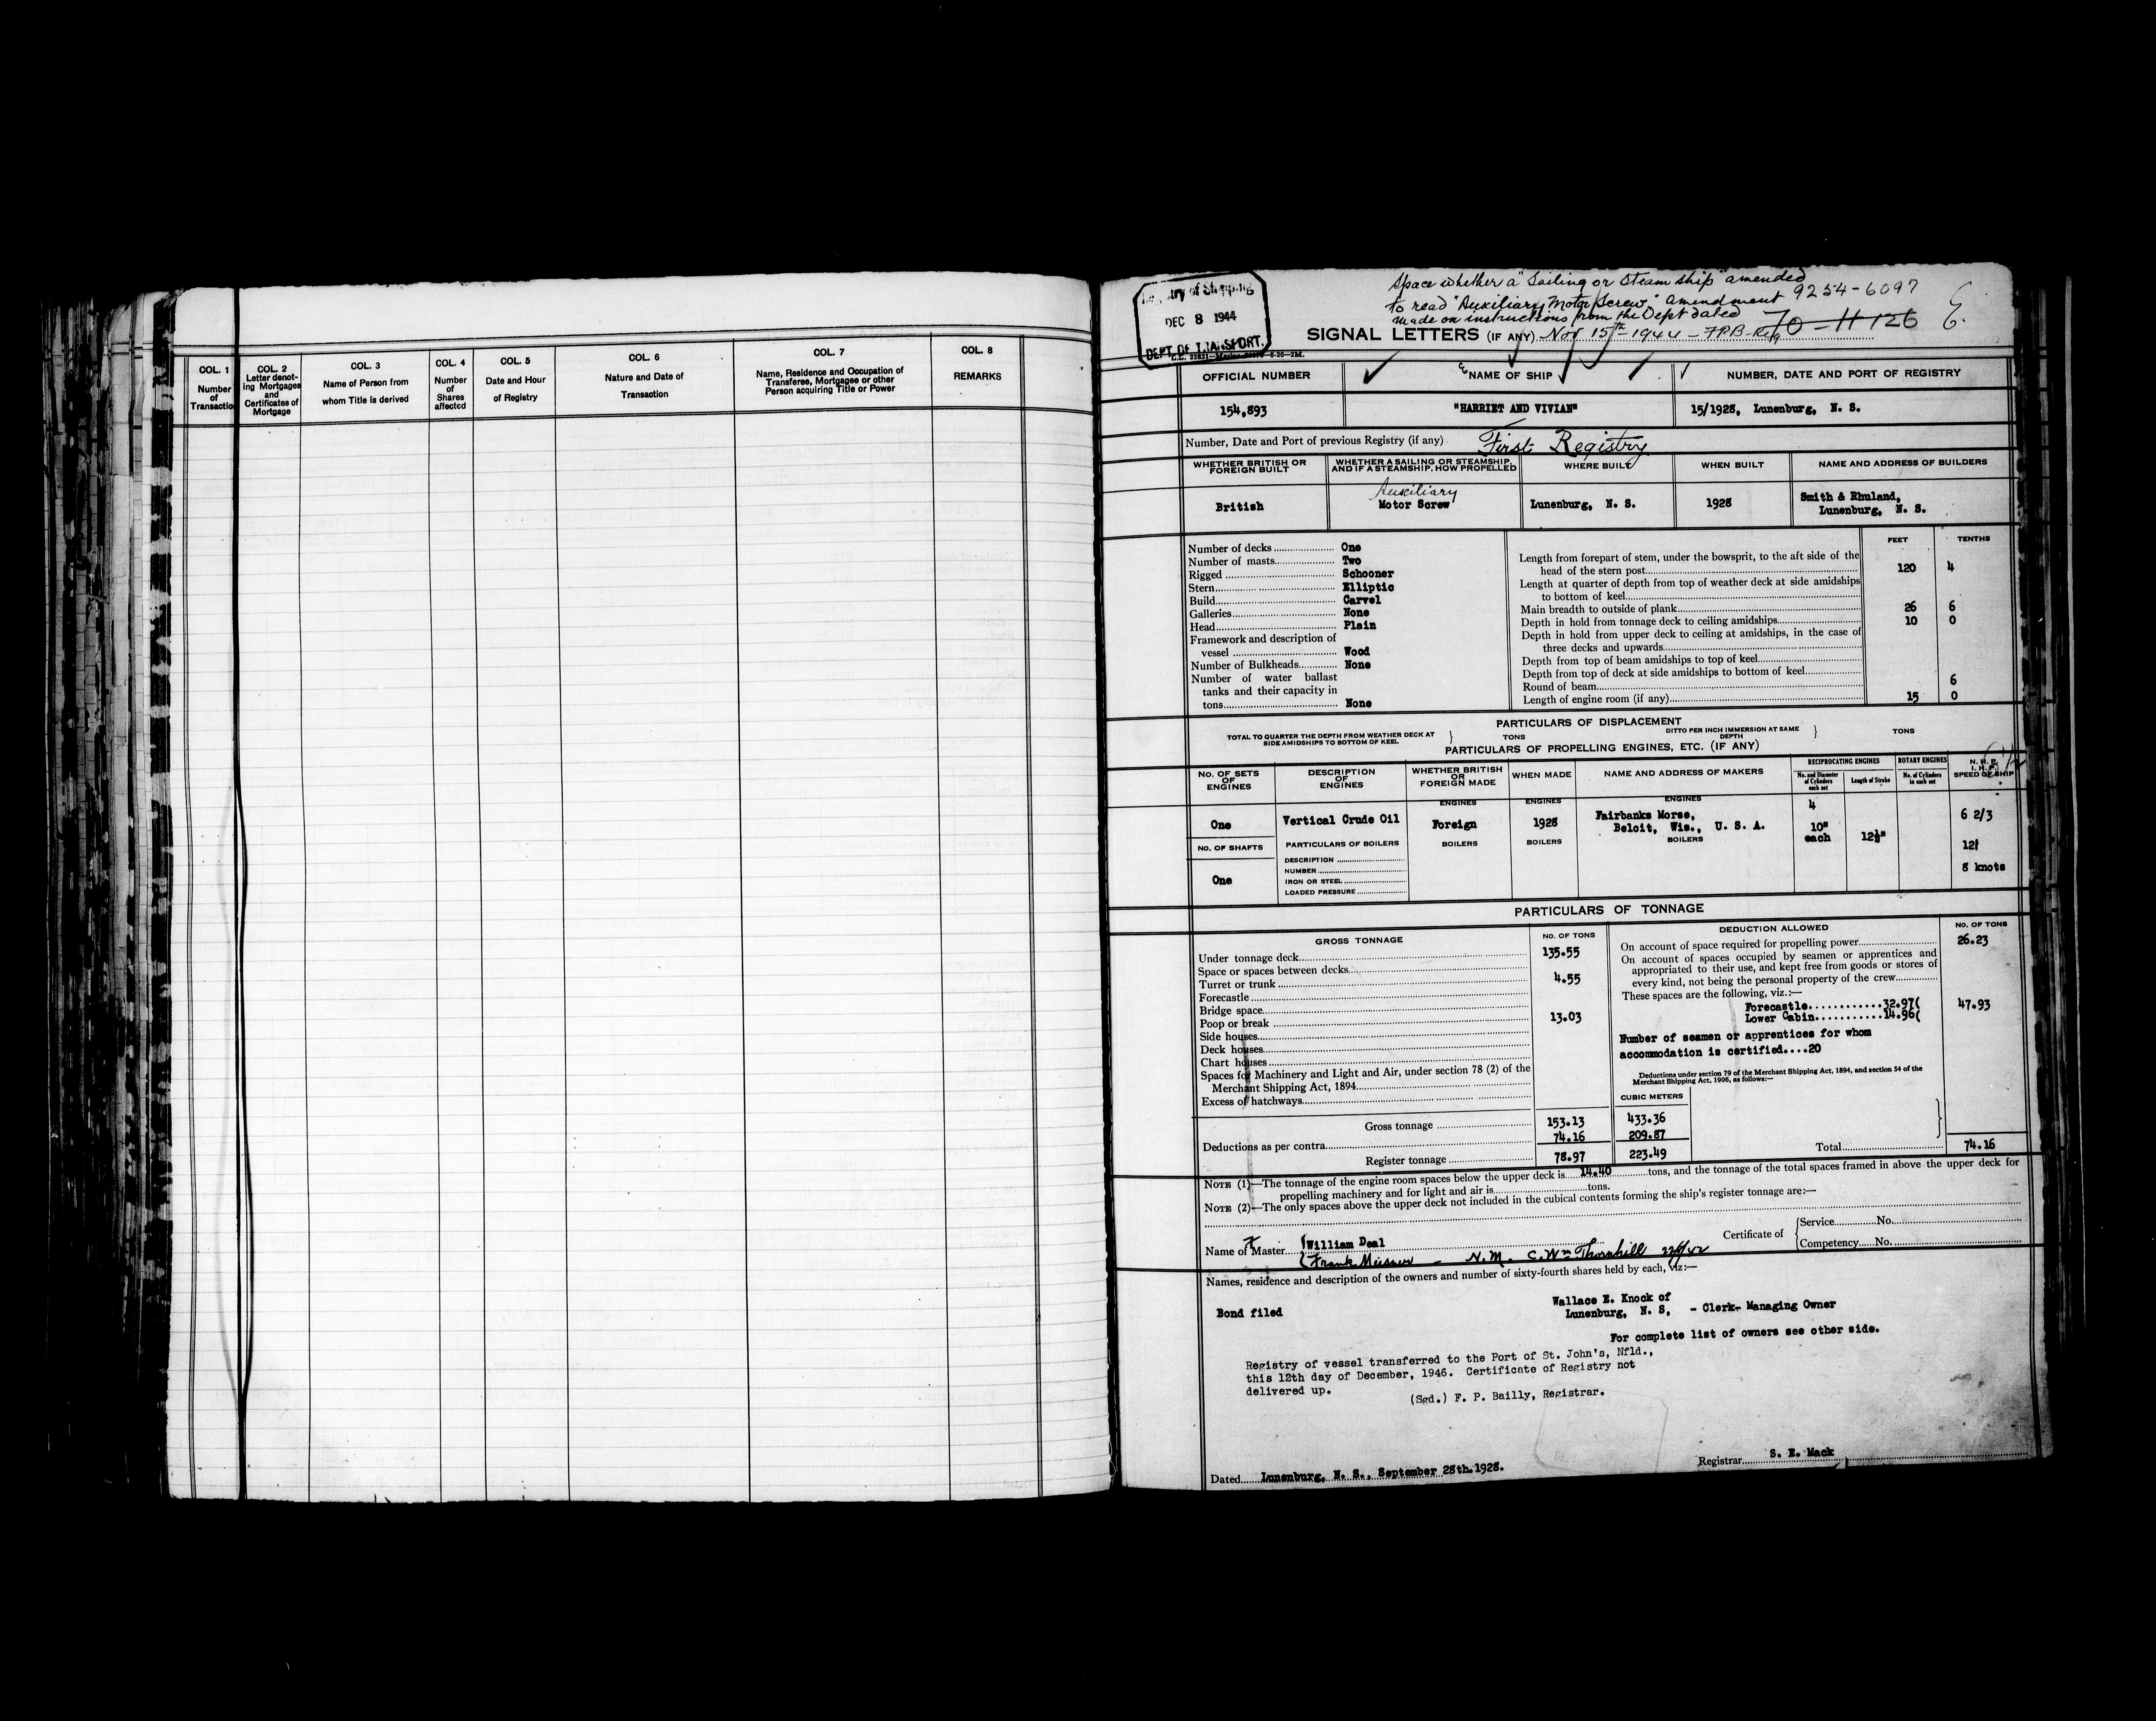 COL. 1
Number
of
Transaction
COL. 2
Letter denot-
ing Mortgages
and
Certificates of
Mortgage
COL. 3
Name of Person from
whom Title is derived
COL. 4
Number
of
Shares
affected
COL. 5
Date and Hour
of Registry
COL. 6
Nature and Date of
Transaction
COL. 7
Name, Residence and Occupation of
Transferee, Mortgagee or other
Person acquiring Title or Power
COL. 8
REMARKS
Registry of Shipping
DEC 8 1944
DEPT. OF TRANSPORT.
Space whether a "Sailing or Steam ship" amended
to read "Auxiliary Motor Screw" amendment 9254-6097
made on instructions from the Dept dated 70-11126
SIGNAL LETTERS (IF ANY) Nov 15th-1944 - FPB-Reg
OFFICIAL NUMBER
NAME OF SHIP
NUMBER, DATE AND PORT OF REGISTRY
154,893
"HARRIET AND VIVIAN"
15/1928, Lunenburg, N. S.
Number, Date and Port of previous Registry (if any) First Registry
WHETHER BRITISH OR
FOREIGN BUILT
WHETHER A SAILING OR STEAMSHIP,
AND IF A STEAMSHIP, HOW PROPELLED
WHERE BUILT
WHEN BUILT
NAME AND ADDRESS OF BUILDERS
British
Auxiliary
Motor Screw
Lunenburg, N. S.
1928
Smith & Rhuland,
Lunenburg, N. S.
Number of decks One
Number of masts Two
Rigged Schooner
Stern Elliptic
Build Carvel
Galleries None
Head Plain
Framework and description of
vessel Wood
Number of Bulkheads None
Number of water ballast
tanks and their capacity in
tons None
FEET TENTHS
Length from forepart of stem, under the bowsprit, to the aft side of the
head of the stern post 120 4
Length at quarter of depth from top of weather deck at side amidships
to bottom of keel
Main breadth to outside of plank 26 6
Depth in hold from tonnage deck to ceiling amidships 10 0
Depth in hold from upper deck to ceiling at amidships, in the case of
three decks and upwards
Depth from top of beam amidships to top of keel
Depth from top of deck at side amidships to bottom of keel
Round of beam 6
Length of engine room (if any) 15 0
PARTICULARS OF DISPLACEMENT
TOTAL TO QUARTER THE DEPTH FROM WEATHER DECK AT
SIDE AMIDSHIPS TO BOTTOM OF KEEL
TONS
DITTO PER INCH IMMERSION AT SAME
DEPTH
TONS
PARTICULARS OF PROPELLING ENGINES, ETC. (IF ANY)
No. OF SETS
OF
ENGINES
DESCRIPTION
OF
ENGINES
WHETHER BRITISH
OR
FOREIGN MADE
WHEN MADE
NAME AND ADDRESS OF MAKERS
RECIPROCATING ENGINES
No. and Diameter
of Cylinders
each set
Length of Stroke
ROTARY ENGINES
No. of Cylinders
in each set
N. H. P.
I. H. P.
SPEED OF SHIP
ENGINES
ENGINES
ENGINES
One
Vertical Crude Oil
Foreign
1928
Fairbanks Morse,
Beloit, Wis., U. S. A.
4
10"
each
12½"
6 2/3
8 knots
No. OF SHAFTS
PARTICULARS OF BOILERS
BOILERS
BOILERS
BOILERS
One
DESCRIPTION
NUMBER
IRON OR STEEL
LOADED PRESSURE
PARTICULARS OF TONNAGE
GROSS TONNAGE
No. OF TONS
Under tonnage deck 135.55
Space or spaces between decks
Turret or trunk 4.55
Forecastle
Bridge space
Poop or break 13.03
Side houses
Deck houses
Chart houses
Spaces for Machinery and Light and Air, under section 78 (2) of the
Merchant Shipping Act, 1894
Excess of hatchways
Gross tonnage 153.13
Deductions as per contra 74.16
Register tonnage 78.97
DEDUCTION ALLOWED
No. OF TONS
On account of space required for propelling power 26.23
On account of spaces occupied by seamen or apprentices and
appropriated to their use, and kept free from goods or stores of
every kind, not being the personal property of the crew
These spaces are the following, viz.:—
Forecastle............32.97(
Lower Cabin...........14.96(
47.93
Number of seamen or apprentices for whom
accommodation is certified....20
Deductions under section 79 of the Merchant Shipping Act, 1894, and section 54 of the
Merchant Shipping Act, 1906, as follows:—
CUBIC METERS
433.36
209.87
223.49
Total 74.16
NOTE (1)—The tonnage of the engine room spaces below the upper deck is 14.40 tons, and the tonnage of the total spaces framed in above the upper deck for
propelling machinery and for light and air is tons.
NOTE (2)—The only spaces above the upper deck not included in the cubical contents forming the ship's register tonnage are:—
Name of Master William Deal
Frank Meisner - N.M. C. Wm Thornhill
Certificate of
Service No.
Competency No.
Names, residence and description of the owners and number of sixty-fourth shares held by each, viz:—
Bond filed
Wallace E. Knock of
Lunenburg, N. S, - Clerk- Managing Owner
For complete list of owners see other side.
Registry of vessel transferred to the Port of St. John's, Nfld.,
this 12th day of December, 1946. Certificate of Registry not
delivered up.
(Sgd.) F. P. Bailly, Registrar.
Dated Lunenburg, N. S., September 28th.1928.
Registrar S. E. Mack